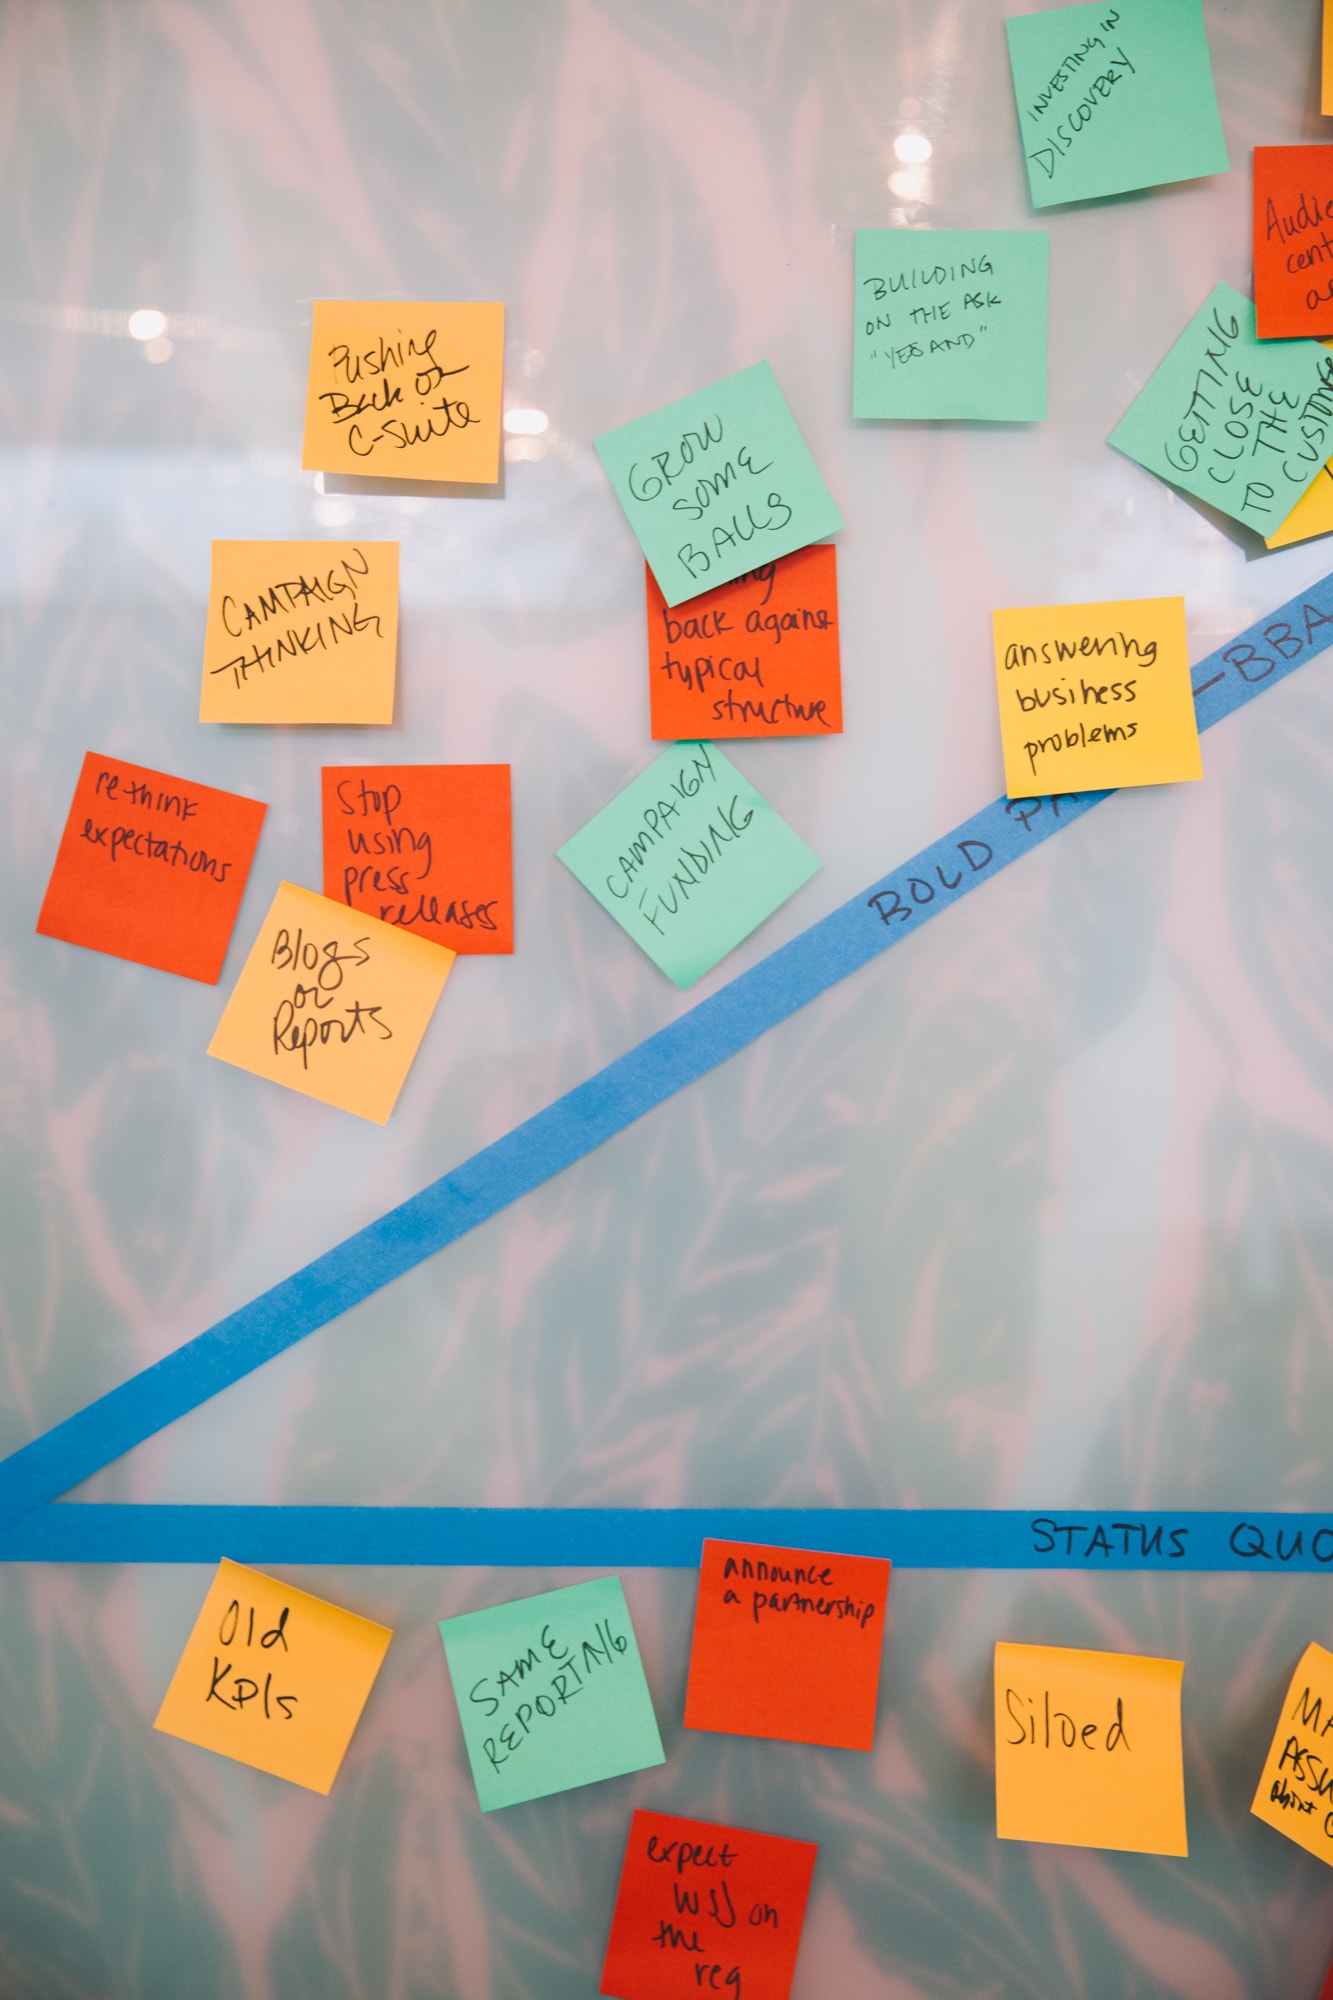 INVESTING IN
DISCOVERY
Audie
cent
BUILDING
ON THE ASK
"YES AND"
GETTING
CLOSE
THE
TO CUSTOME
Pushing
Back on
C-Suite
GROW
SOME
BALLS
back against
typical
structure
CAMPAIGN
THINKING
answering
business
problems
rethink
expectations
Stop
using
press
releases
CAMPAIGN
FUNDING
Blogs
or
Reports
BOLD PA
-BBA
STATUS QUO
announce
a partnership
Old
KPIs
SAME
REPORTING
Siloed
MA
ASSU
about
expect
WSJ on
the
reg